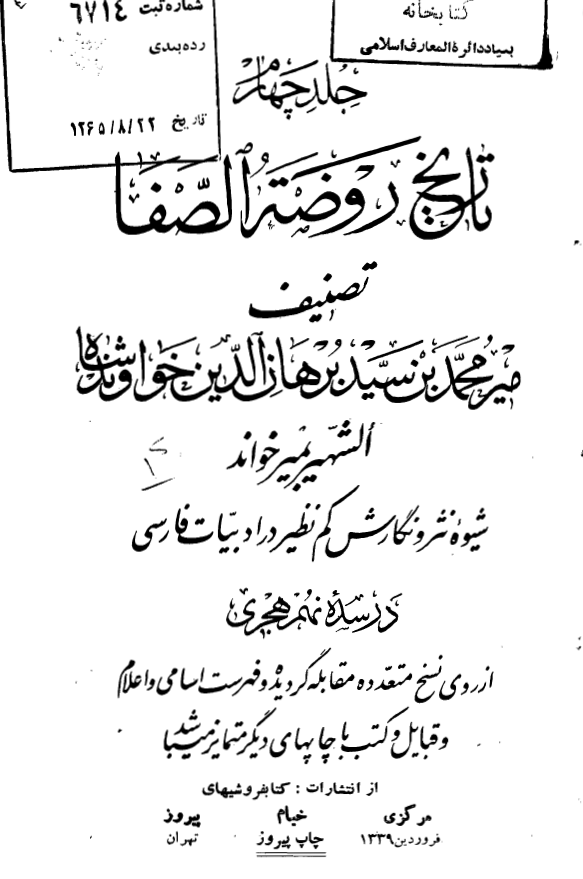 شماره ثبت ۶۷۱۴
رده‌بندی
تاریخ ۱۳۶۵/۸/۲۲
کتابخانه
بنیاد دائرة المعارف اسلامی
جلد چهارم
تاریخ روضة الصفا
تصنیف
میر محمد بن سید برهان الدین خواوندشاه
الشهیر بمیرخواند
شیوهٔ نثر و نگارش کم نظیر در ادبیّات فارسی
در سدهٔ نهم هجری
از روی نسخ متعدّده مقابله گردیده و فهرست اسامی و اعلام
و قبایل و کتب با چاپهای دیگر متمایز میباشد
از انتشارات : کتابفروشیهای
مرکزی خیام پیروز
فروردین ۱۳۳۹ چاپ پیروز تهران